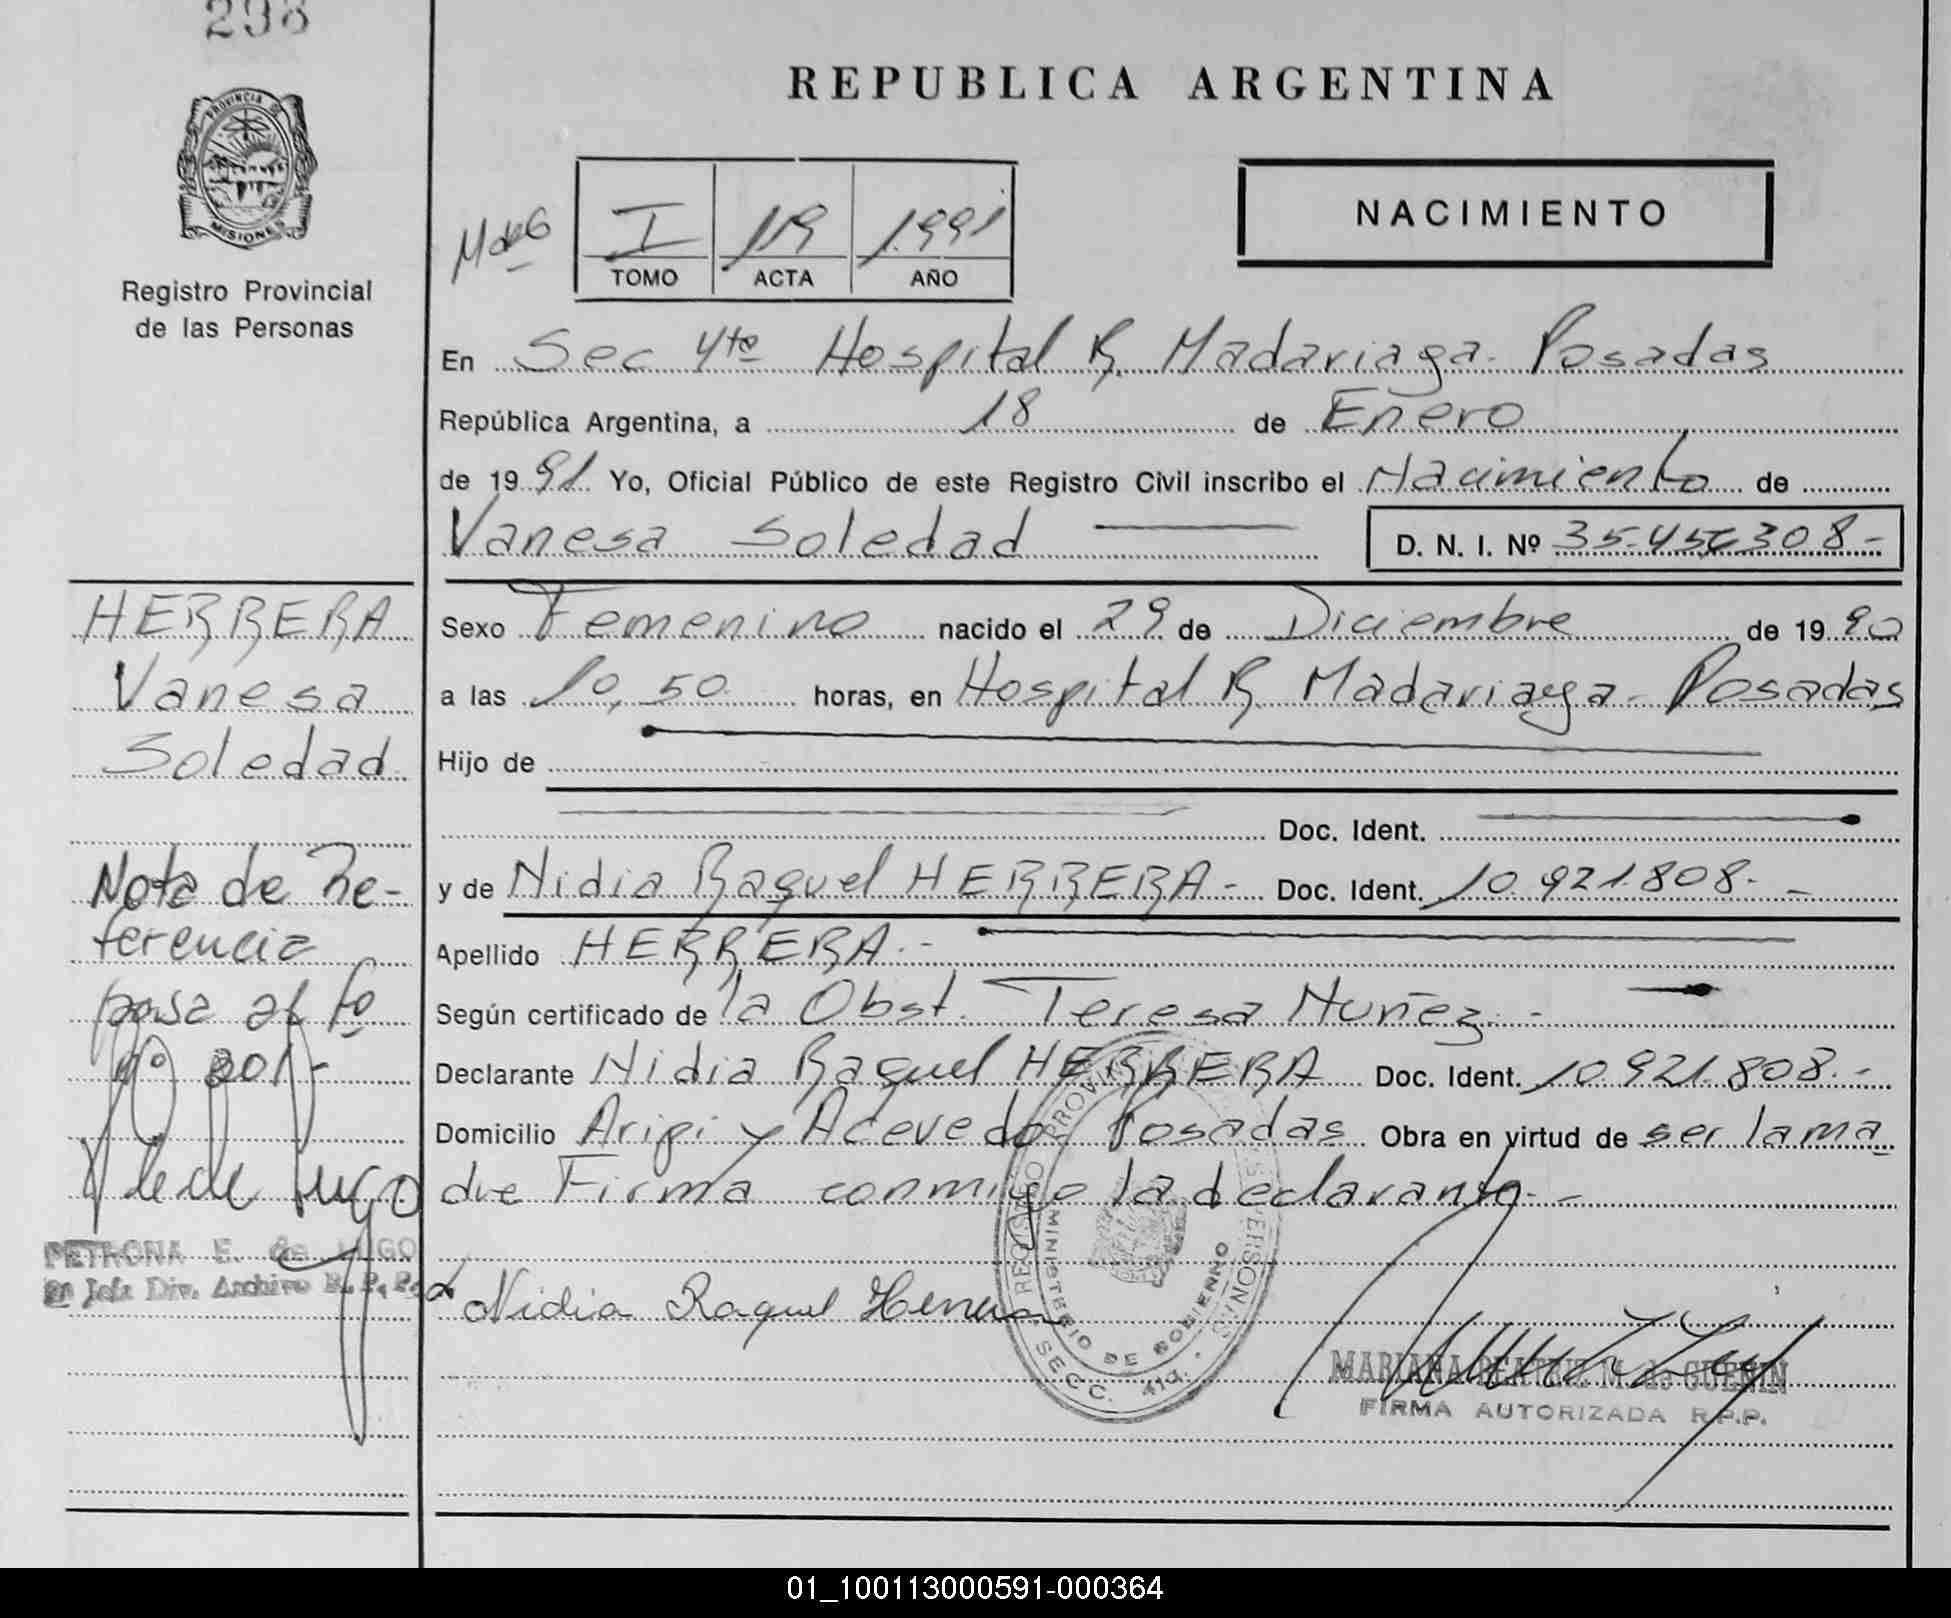 298
REPUBLICA ARGENTINA
PROVINCIA DE
MISIONES
Registro Provincial
de las Personas
I 119 1.991
TOMO ACTA AÑO
NACIMIENTO
En Sec 4ta Hospital R. Madariaga. Posadas
República Argentina, a 18 de Enero
de 1991. Yo, Oficial Público de este Registro Civil inscribo el Nacimiento de
Vanesa Soledad D. N. I. Nº 35.456308-
HERRERA
Vanesa
Soledad
Sexo Femenino nacido el 29 de Diciembre de 1990
a las 10,50 horas, en Hospital R. Madariaga - Posadas
Hijo de
Doc. Ident.
y de Nidia Raquel HERRERA - Doc. Ident. 10.921.808. -
Apellido HERRERA. -
Según certificado de la Obst. Teresa Nuñez. -
Declarante Nidia Raquel HERRERA Doc. Ident. 10.921.808. -
Domicilio Aripi y Acevedo Posadas Obra en virtud de ser la ma
dre Firma conmigo la declarante. -
Nota de Re-
ferencia
pasa al fo
nº 201-
de Lugo
PETRONA E. de LUGO
Jefe Div. Archivo R. P. P.
Nidia Raquel Herrera
REGISTRO PROVINCIAL PERSONAS
MINISTERIO DE GOBIERNO
SECC. 41a.
MARIANA BEATRIZ M. de GUENIN
FIRMA AUTORIZADA R.P.P.
01_100113000591-000364